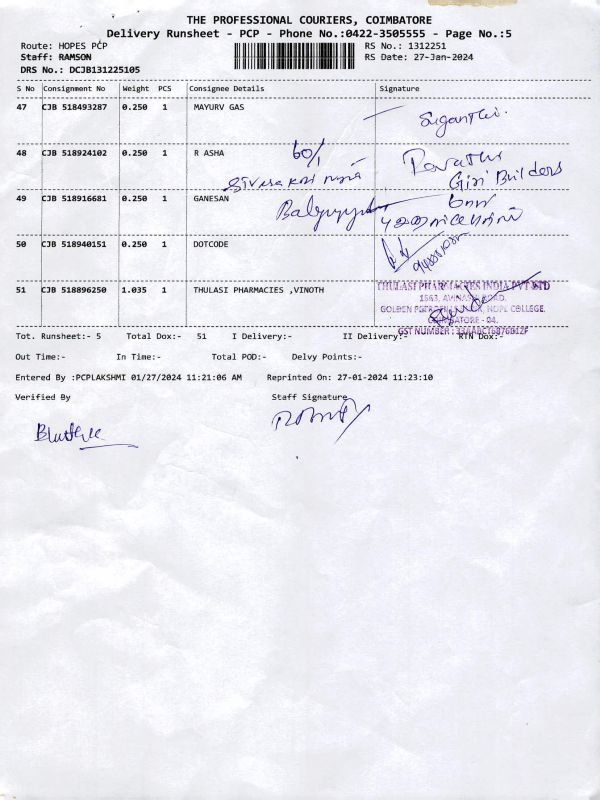 THE PROFESSIONAL COURIERS, COIMBATORE
Delivery Runsheet - PCP - Phone No.:0422-3505555 - Page No.:5
Route: HOPES PCP
RS No.: 1312251
Staff: RAMSON
RS Date: 27-Jan-2024
DRS No.: DCJB131225105
S No Consignment No Weight PCS Consignee Details Signature
47 CJB 518493287 0.250 1 MAYURV GAS
Suganthi.
48 CJB 518924102 0.250 1 R ASHA
60/1
Revathi
Giri Builders
49 CJB 518916681 0.250 1 GANESAN
50 CJB 518940151 0.250 1 DOTCODE
51 CJB 518896250 1.035 1 THULASI PHARMACIES ,VINOTH
THULASI PHARMACIES INDIA PVT LTD
1563, AVINASHI ROAD,
HOPE COLLEGE,
COIMBATORE - 04.
GST NUMBER :
Tot. Runsheet:- 5 Total Dox:- 51 I Delivery:- II Delivery:- RTN Dox:-
Out Time:- In Time:- Total POD:- Delvy Points:-
Entered By :PCPLAKSHMI 01/27/2024 11:21:06 AM Reprinted On: 27-01-2024 11:23:10
Verified By Staff Signature